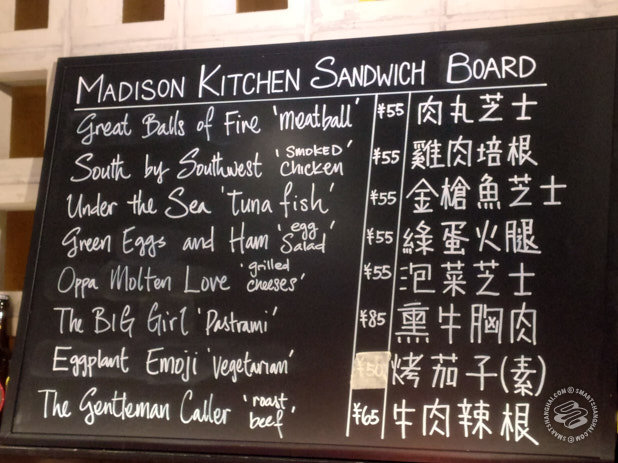 MADISON KITCHEN SANDWICH BOARD
Great Balls of Fire 'meatball' ¥55 肉丸芝士
South by Southwest 'SMOKED' chicken ¥55 雞肉培根
Under the Sea 'tuna fish' ¥55 金槍魚芝士
Green Eggs and Ham 'egg salad' ¥55 綠蛋火腿
Oppa Molten Love 'grilled cheeses' ¥55 泡菜芝士
The BIG Girl 'Pastrami' ¥85 熏牛胸肉
Eggplant Emoji 'vegetarian' ¥50 烤茄子(素)
The Gentleman Caller 'roast beef' ¥65 牛肉辣根
SMARTSHANGHAI.COM © SMARTSHANGHAI.COM ©